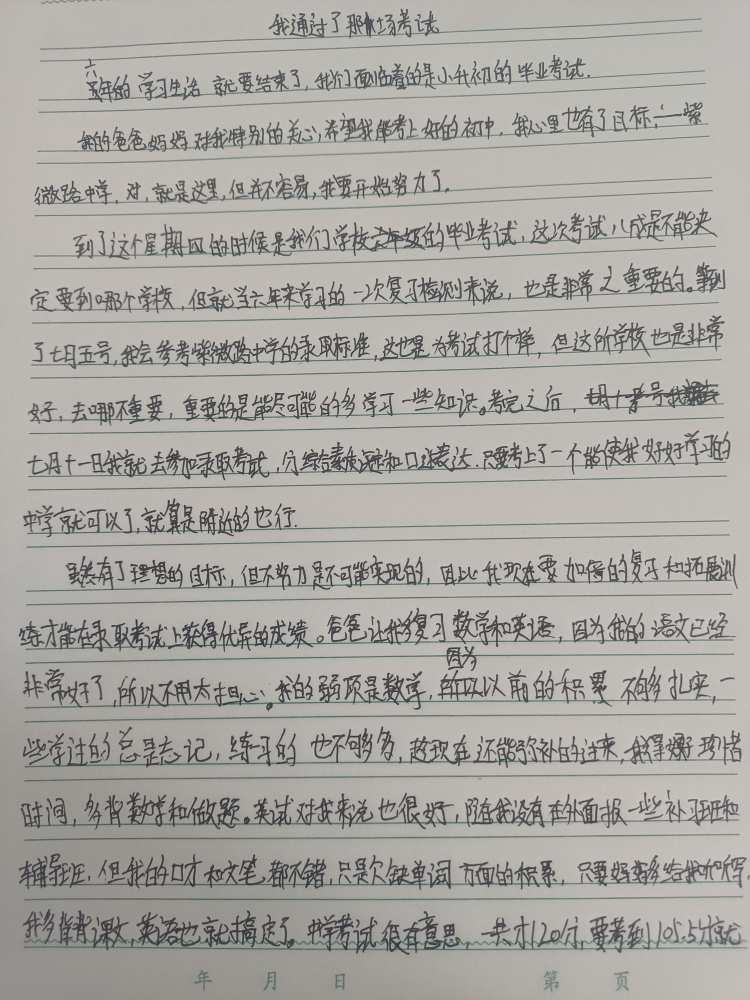 我通过了那场考试
六
年的学习生活就要结束了，我们面临着的是小升初的毕业考试.
我的爸爸妈妈对我特别的关心，希望我能考上好的初中，我心里也有了目标，一紫
微路中学，对，就是这里，但并不容易，我要开始努力了。
到了这个星期四的时候是我们学校六年级的毕业考试，这次考试八成是不能决
定要到哪个学校，但就当六年来学习的一次复习检测来说，也是非常之重要的。等到
了七月五号，我会参考紫微路中学的录取标准，这也是为考试打个样，但这所学校也是非常
好，去哪不重要，重要的是能尽可能的多学习一些知识。考完之后，
七月十一日我就去参加录取考试，分综合素质和口头表达.只要考上了一个能使我好好学习的
中学就可以了，就算是附近的也行.
虽然有了理想的目标，但不努力是不可能实现的，因此我现在要加倍的复习和拓展训
练才能在录取考试上获得优异的成绩。爸爸让我多复习数学和英语，因为我的语文已经
非常好了，所以不用太担心。我的弱项是数学，因为以前的积累不够多扎实，一
些学过的总是忘记，练习的也不够多，趁现在还能弥补的过来，我得好好珍惜
时间，多背数学和做题。英试对我来说也很好，随我没有在外面报一些补习班和
辅导班，但我的口才和文笔都不错，只是欠缺单词方面的积累，只要妈妈多给我
我多背背课文，英语也就搞定了。中学考试很有意思，一共才120分，要考到105.5才就
年 月 日 第 页